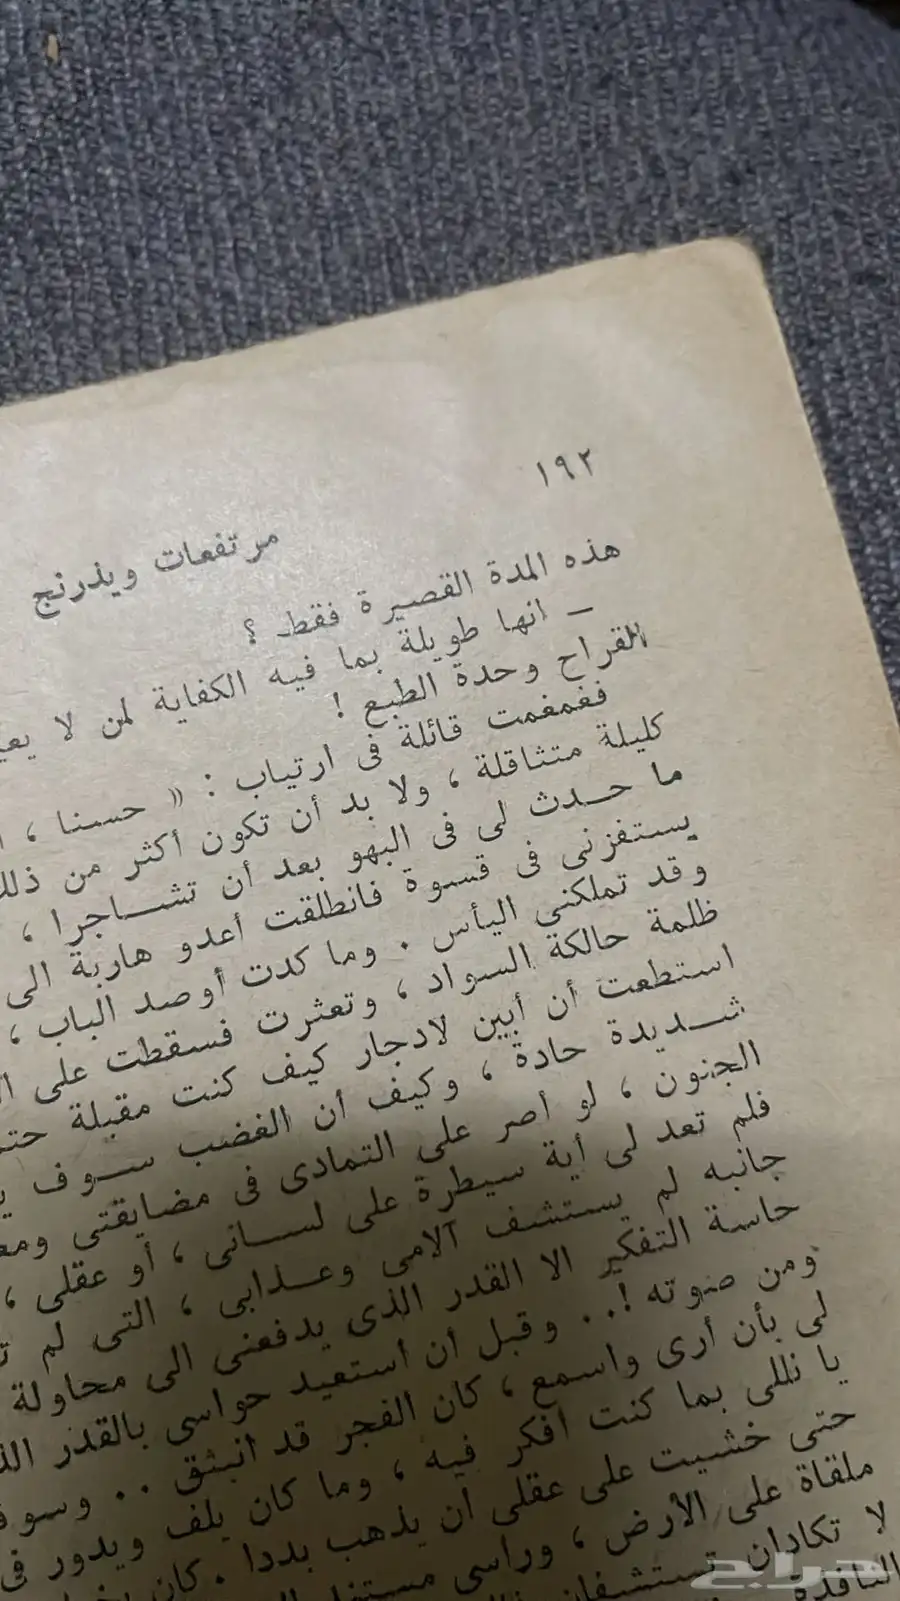 ١٩٢
مرتفعات ويذرنج
هذه المدة القصيرة فقط ؟
– انها طويلة بما فيه الكفاية لمن لا
القراح وحدة الطبع !
فغمغمت قائلة فى ارتياب : « حسنا ،
كليلة متثاقلة ، ولا بد أن تكون أكثر من ذلك
ما حدث لى فى البهو بعد أن تشاجرا ،
يستفزنى فى قسوة فانطلقت أعدو هاربة الى
وقد تملكني اليأس . وما كدت أوصد الباب ،
ظلمة حالكة السواد ، وتعثرت فسقطت على
استطعت أن أبين لادجار كيف كنت مقبلة
شديدة حادة ، وكيف أن الغضب سوف
الجنون ، لو أصر على التمادى فى مضايقتى
فلم تعد لى أية سيطرة على لسانى ، أو عقلى ،
جانبه لم يستشف آلامى وعذابى ، التى لم
حاسة التفكير الا القدر الذى يدفعنى الى محاولة
ومن صوته !.. وقبل أن أستعيد حواسى بالقدر
لى بأن أرى واسمع ، كان الفجر قد انبثق .. وسوف
يا نللى بما كنت أفكر فيه ، وما كان يلف ويدور فى
حتى خشيت على عقلى أن يذهب بددا . كان
ملقاة على الأرض ، ورأسى
لا تكادان تستشفان
النافذة
حراج